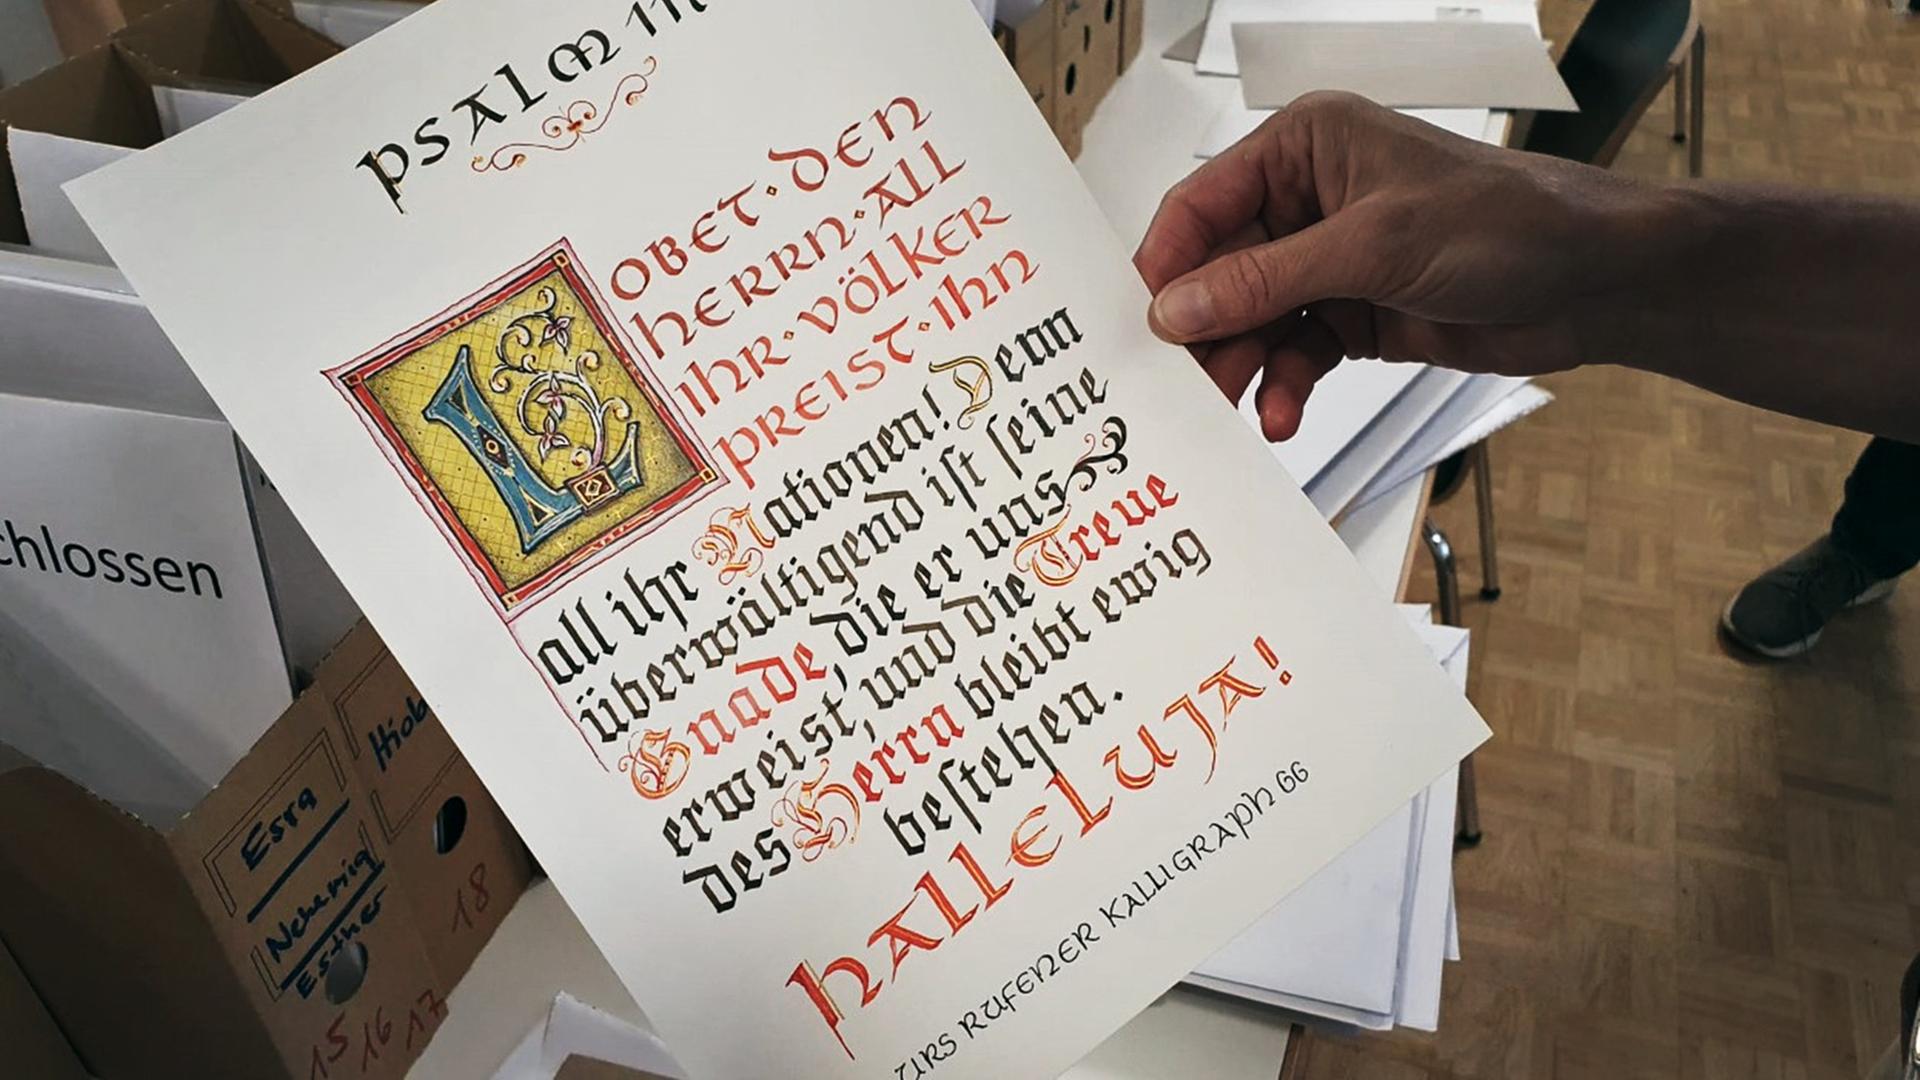 PSALM 11
LOBET·DEN
HERRN·ALL
IHR·VÖLKER
PREIST·IHN
all ihr Nationen! Denn
überwältigend ist seine
Gnade, die er uns
erweist, und die Treue
des Herrn bleibt ewig
bestehen.
HALLELUJA!
URS RUFENER KALLIGRAPH 66
chlossen
Esra
Nehemia
Esther
15 16 17
Hiob
18